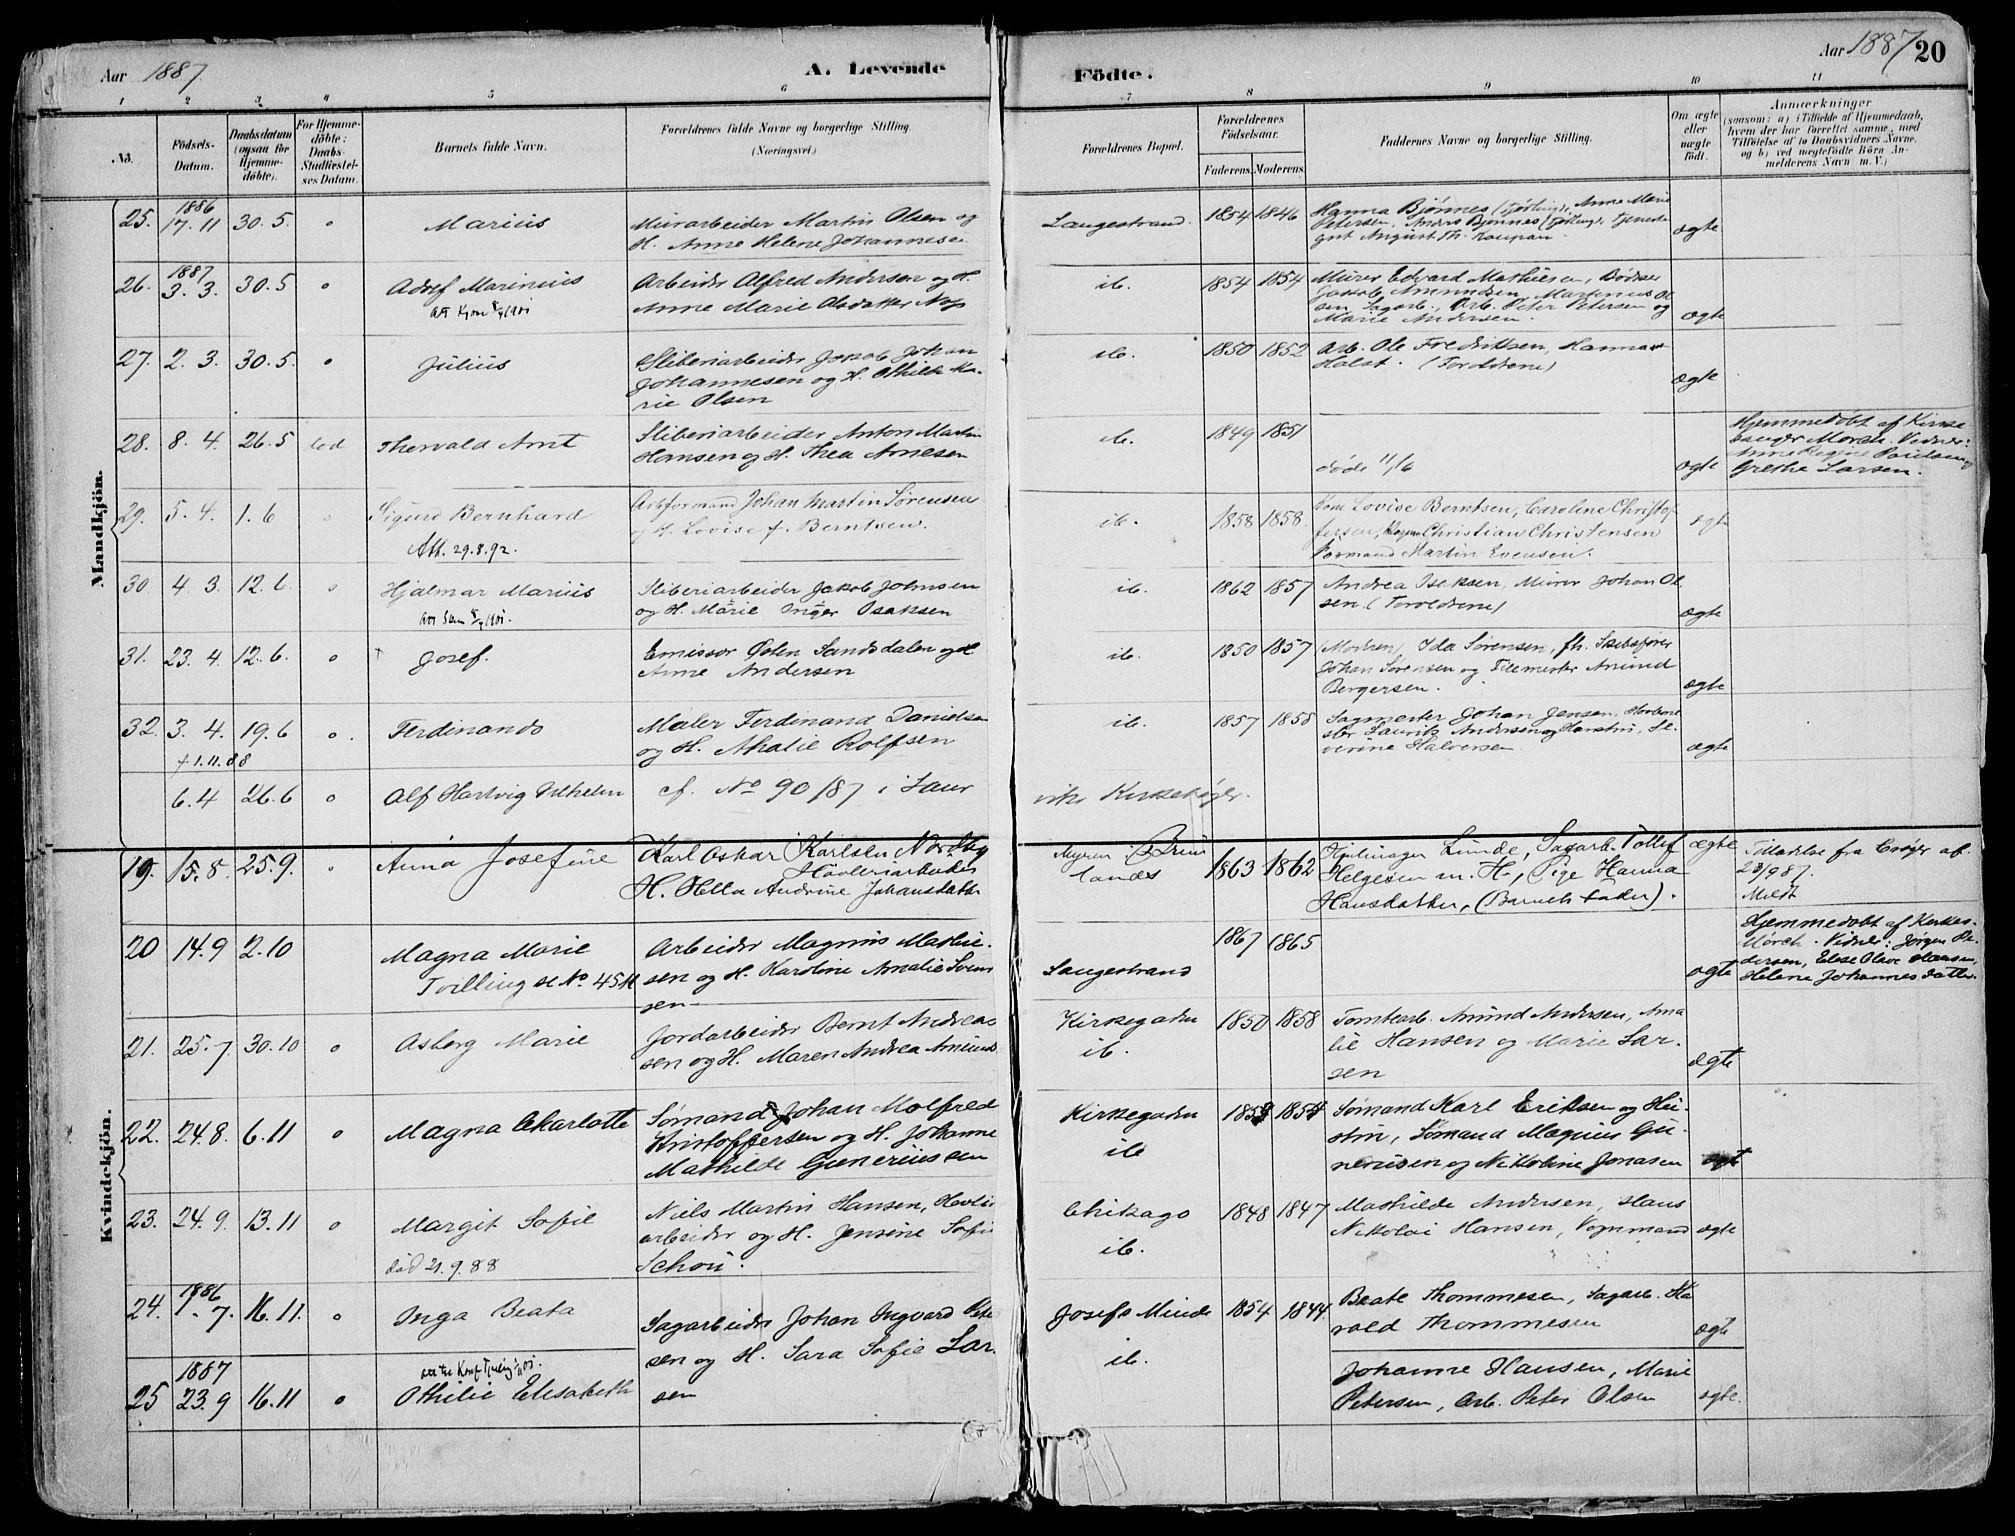 Aar 1887
A. Levende
Födte.
Aar 1887
20
1 2 3 4 5 6 7 8 9 10 11
No.
Födsels-
Datum.
Daabsdatum
(ogsaa for
Hjemme-
döbte).
For Hjemme-
döbte:
Daabs-
Stadfæstel-
ses Datum.
Barnets fulde Navn.
Forældrenes fulde Navne og borgerlige Stilling
(Næringsvei.)
Forældrenes Bopæl.
Forældrenes
Födselsaar.
Faderens. Moderens.
Faddernes Navne og borgerlige Stilling.
Om ægte
eller
uægte
födt.
Anmærkninger
(saasom: a) i Tilfælde af Hjemmedaab,
hvem der har forrettet samme, med
Tilföielse af to Daabsvidners Navne,
og b) ved uægtefödte Börn An-
melderens Navn m. V.)
Mandkjön.
25. 1886 17.11 30.5. 0 Marius
Murarbeider Martin Olsen og
H. Anne Helene Johannesen
Langestrand. 1854 1846
Hanna Bjønnes (Tjølling), Anne Marie
Petersen, Anders Bjønnes (Tjølling), Tjeneste
gut August Th. Kaupan.
ægte
26. 1887 3.3. 30.5 0 Adolf Marinius
Arbeider Alfred Andersen og H.
Anne Marie Olsdatter
ib. 1854 1854
Murer Edvard Mathiesen, Bødker
Jakob Amundsen, Martinius Ol
sen Sagarb., Arb. Peter Petersen og
Marie Andersen.
ægte
27. 2.3. 30.5. 0 Julius
Sliberiarbeider Jakob Johan
Johannesen og H. Othilde Ma-
rie Olsen
ib. 1850 1852
Arb. Ole Fredriksen, Hanna
Holst. (Forældrene)
ægte
28. 8.4. 26.5 Thorvald Arnt
Sliberiarbeider Anton Martin
Hansen og H. Thea Arnesen
ib. 1849 1851
døde 11/6
ægte
Hjemmedøbt af Kirke
sanger Mørch. Vidner:
Anne Regine Paulsen og
Grethe Larsen.
29. 5.4. 1.6 0 Sigurd Bernhard
Att. 29.8.92.
Arbformand Johan Martin Sørensen
og H. Lovise f. Berntsen.
ib. 1858 1858.
Kone Lovise Berntsen, Caroline Christof
fersen, Christian Christensen
Formand Martin Evensen.
ægte
30. 4.3. 12.6. 0 Hjalmar Marius
Sliberiarbeider Jakob Johnsen
og H. Marie Inger Isaksen
ib. 1862 1857
Andrea Isaksen, Murer Johan Ol
sen. (Forældrene)
ægte
31. 23.4. 12.6. 0 Josef.
Emissær Østen Sandsdalen og H.
Anne Andersen
ib. 1850 1857
(Modren) Ida Sørensen, fh. Skibsfører
Johan Sørensen og Tilemester Amund
Bergersen.
ægte
32. 3.4. 19.6 0. Ferdinand
† 1.11.88
Maler Ferdinand Danielsen
og H. Athalie Rolfsen
ib. 1857 1858
Sagmester Johan Jensen,
Laurits Andersen og Hustru, Se
verine Halversen
ægte
6.4 26.6 0 Alf Hartvig Vilhelm
cf. No 90/87 i Laur
viks Kirkebøger.
Kvindekjön.
19. 15.8. 25.9. 0 Anna Josefine
Karl Oskar Karlsen Nordby
Høvleriarbeider
H. Hella Andrine Johansdatter
Myren i Brun
lanæs 1863 1862
Lunde, Sagarb. Tollef
Helgesen m. H., Pige Hanna
Hansdatter, (Barnets Fader).
ægte
Tilladelse fra af
23/9 87.
Meldt
20 14.9 2.10 Magna Marie
Tvilling se No 45
Arbeider Magnus Mathie-
sen og H. Karoline Amalie Svend
sen
Langestrand 1867 1865
ægte
Hjemmedøbt af Kirkes.
Mørch. Vidner: Jørgen Pe-
dersen, Elise Olave Hansen,
Helene Johannesdatter
21. 25.7. 30.10 0 Asborg Marie
Jordarbeider Bernt Andreas
sen og H. Maren Andrea Amund
Kirkegaden
ib. 1850 1858
Tomtearb. Amund Andersen, Ama
lie Hansen og Marie Lar-
sen
ægte
22. 24.8. 6.11 0 Magna Charlotte
Sømand Johan Molfred
Kristoffersen og H. Johanne
Mathilde Gunereussen
Kirkegaden
ib 1854
Sømand Karl Eriksen og Hu-
stru, Sømand Magnus Gu-
nerusen og Nikoline Jonasen
ægte
23. 24.9. 13.11 0 Margit Sofie
død 21.9.88
Niels Martin Hansen, Høvleri
arbeider og H. Jensine Sofie
Schou.
Chikago
ib. 1848 1847
Mathilde Andersen, Hans
Nikolai Hansen, Vognmand
ægte
24. 1886 1.7. 16.11. 0 Inga Beata
Sagarbeider Johan Ingvard Peter
sen og H. Sara Sofie Lar-
sen
Josefs Minde
ib. 1854 1844
Beate Thommesen, Sagarb. Ha
rald Thommesen
ægte
25 1887 23.9 16.11 0 Othilie Elisabeth
Johanne Hansen, Marie
Petersen, Arb. Peter Olsen
ægte.